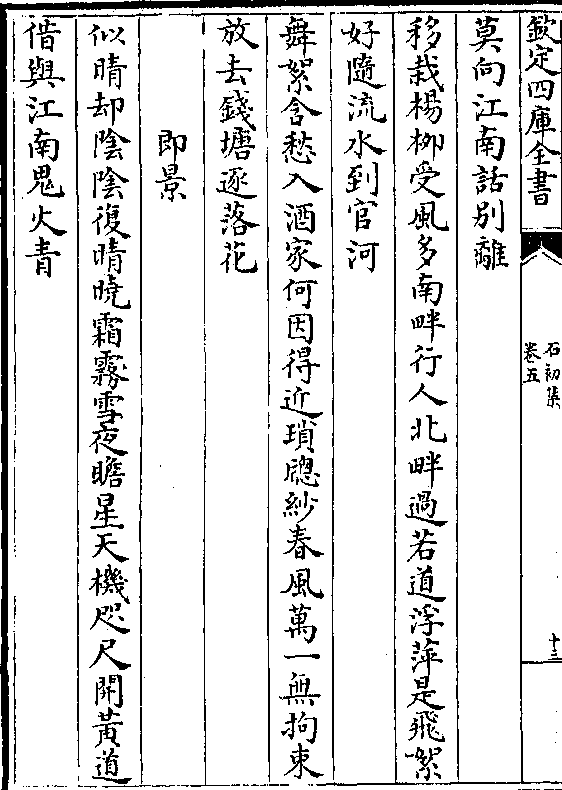 欽定四庫全書
石初集
卷五
十三
莫向江南話别離
移栽楊柳受風多南畔行人北畔過若道浮萍是飛絮
好隨流水到官河
舞絮含愁入酒家何因得近瑣牕紗春風萬一無拘束
放去錢塘逐落花
即景
似晴却陰陰復晴曉霜霧雪夜瞻星天機咫尺開黃道
借與江南鬼火青